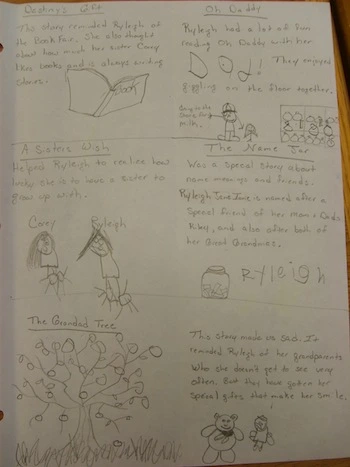 Destiny's Gift
The story reminded Ryleigh of
the Book Fair. She also thought
about how much her sister Corey
likes books and is always writing
stories.
Oh Daddy
Ryleigh had a lot of fun
reading Oh Daddy with her
DAD! They enjoyed
giggling on the floor together.
milk.
A Sisters Wish
Helped Ryleigh to realize how
lucky she is to have a sister to
grow up with.
Corey Ryleigh
The Name Jar
Was a special story about
name meanings and friends.
Ryleigh Jane is named after a
special friend of her mom & dads
Riley, and also after both of
her Great Grandmas.
Ryleigh
The Grandad Tree
This story made us sad. It
reminded Ryleigh of her grandparents
who she doesn't get to see very
often. But they have gotten her
special gifts that make her smile.